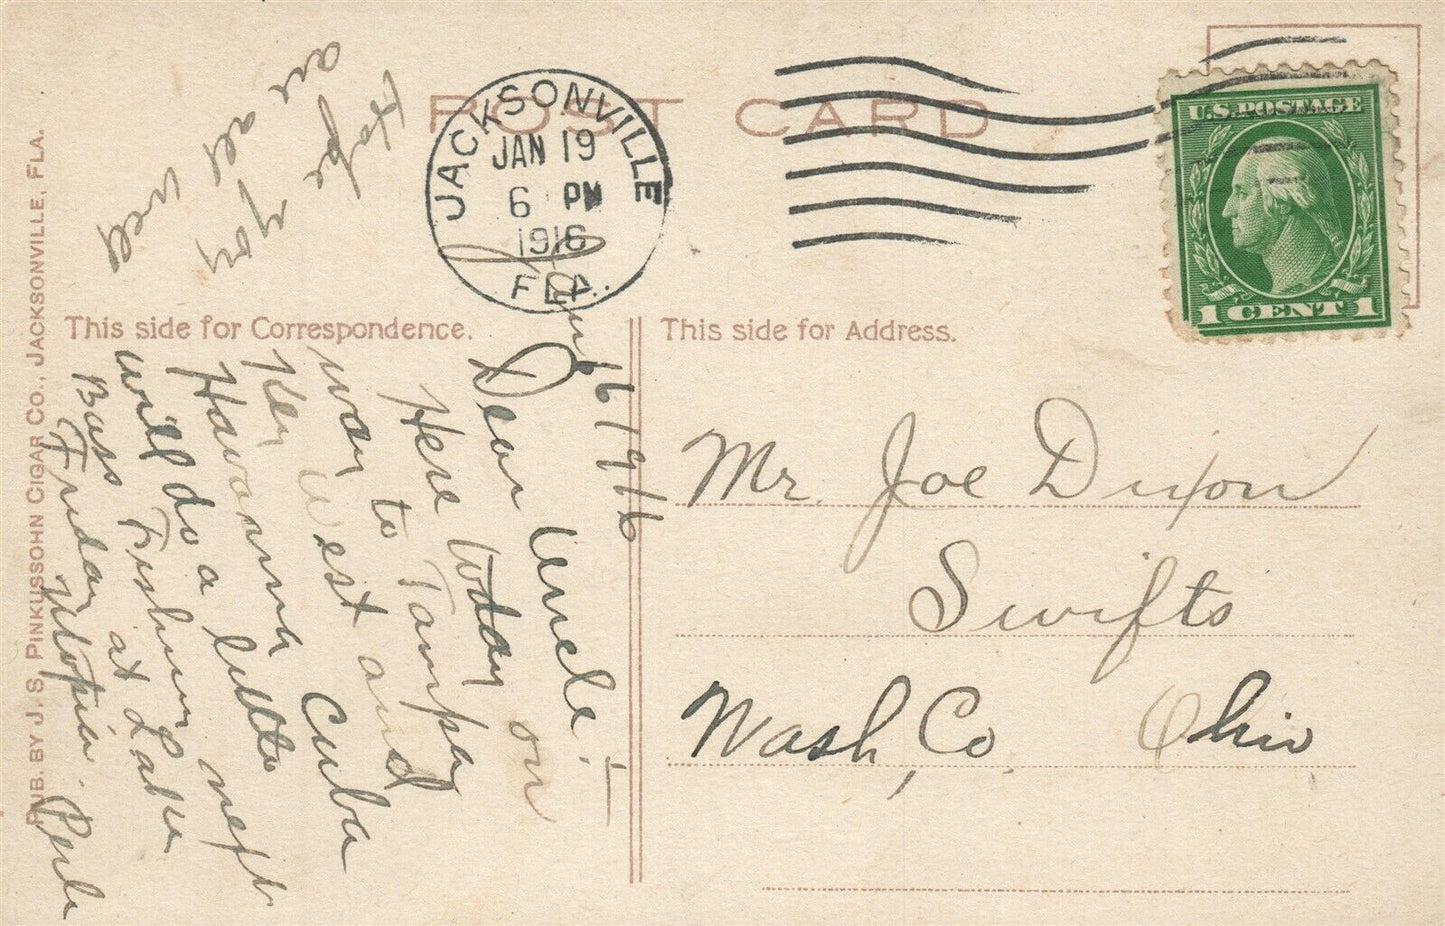 POST CARD
JACKSONVILLE
JAN 19
6 PM
1916
FLA.
U.S. POSTAGE
1 CENT 1
This side for Correspondence.
This side for Address.
PUB. BY J. S. PINKUSSOHN CIGAR CO., JACKSONVILLE, FLA.
Jan 16 1916
Dear Uncle:—
Here today on
way to Tampa
Key West and
Havanna Cuba
will do a little
Bass Fishing next
Friday at Lake
Utopia. Perle
Hope
you
are all
well
Mr. Joe Dixon
Swifts
Wash, Co. Ohio